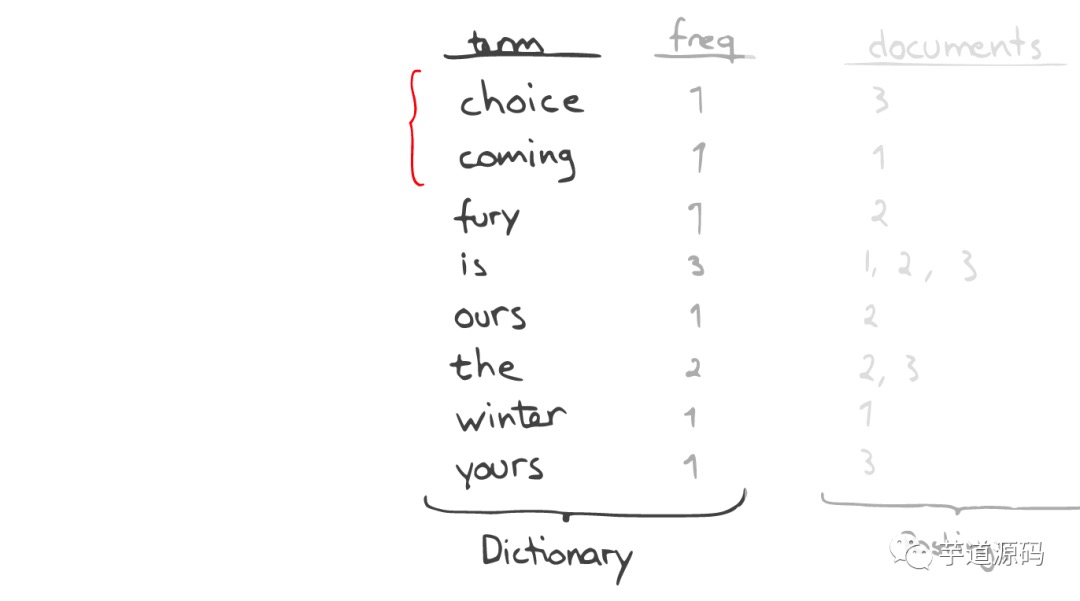 term freq documents
choice 1 3
coming 1 1
fury 1 2
is 3 1, 2, 3
ours 1 2
the 2 2, 3
winter 1 1
yours 1 3
Dictionary
芋道源码